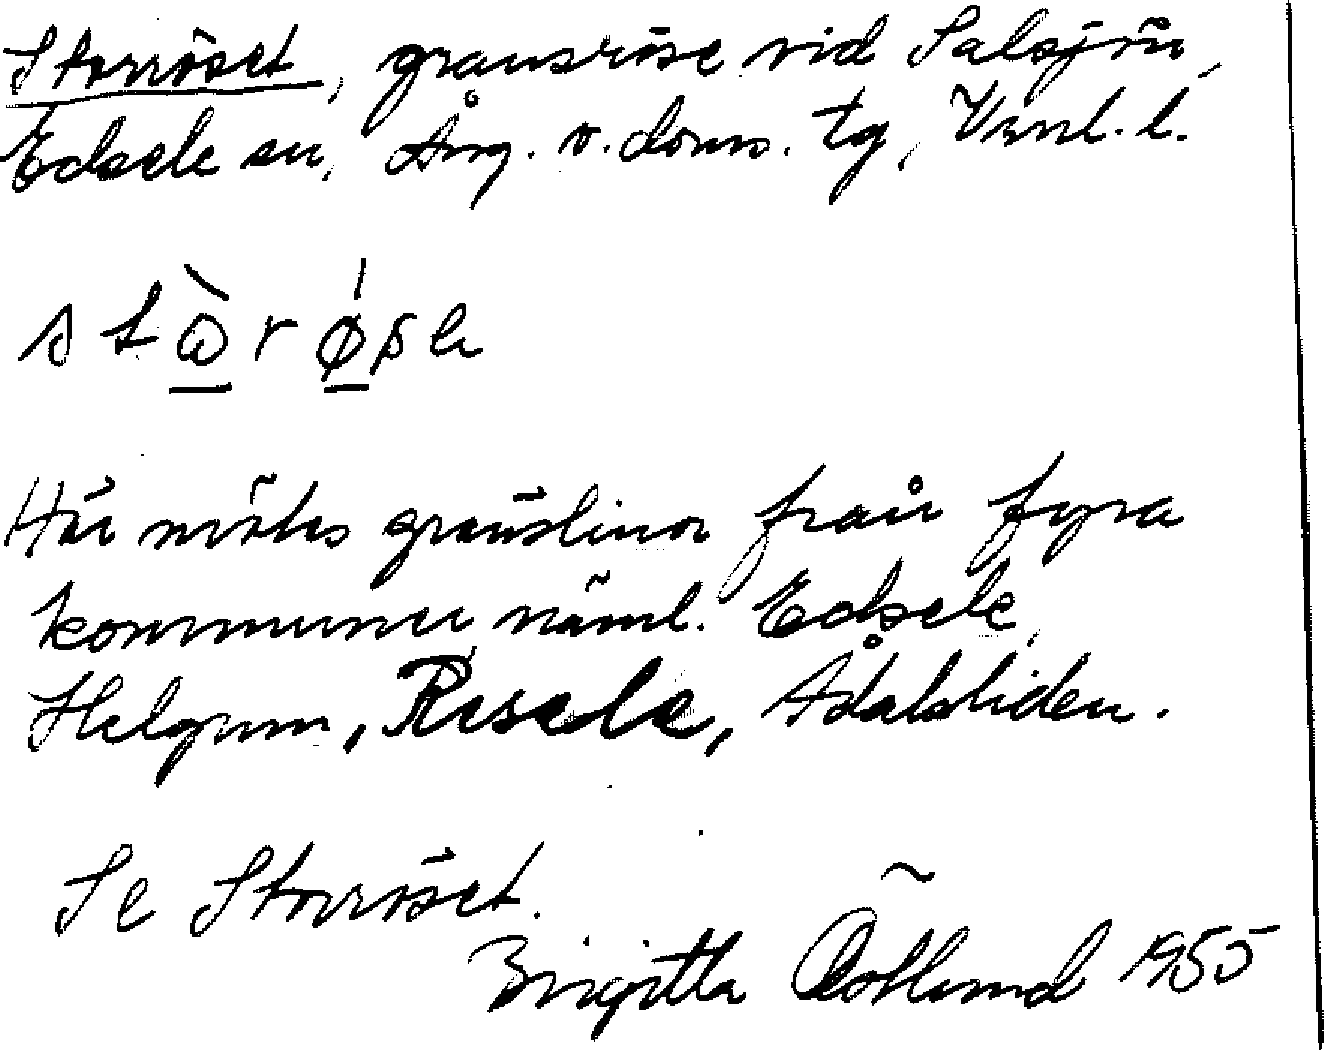 Storröset, gränsröse vid Salsjön,
Edsele sn, Ång. v. doms. tg, Vnrl. l.
stὼ̲rǿ̲sə
Här mötes gränslinor från fyra
kommuner näml. Edsele,
Helgum, Resele, Ådalsliden.
Se Storröset.
Birgitta 1955